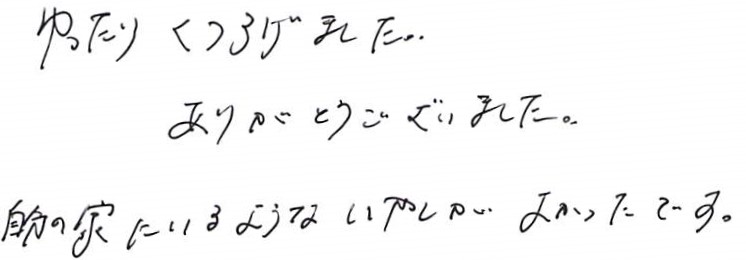 ゆったり くつろげました。
ありがとうございました。
自分の家にいるような いやしが よかったです。